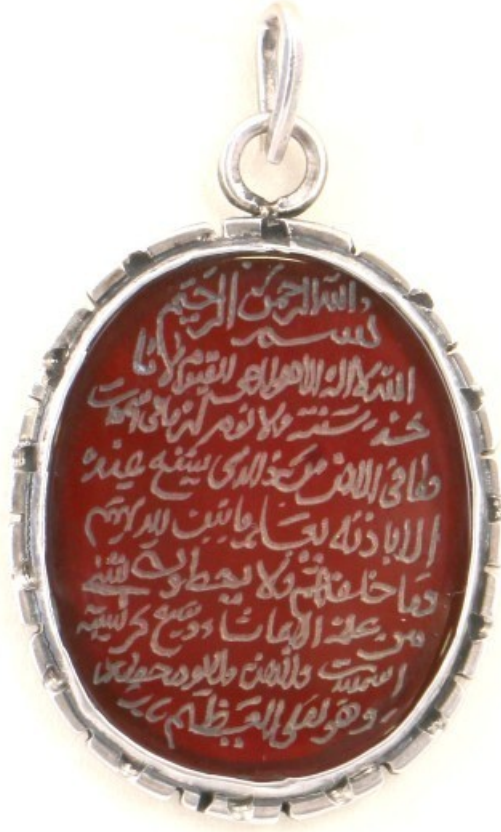 بسم الله الرحمن الرحيم
الله لا اله الا هو الحي القيوم لا تا
خذه سنة ولا نوم له ما في السموات
وما في الارض من ذالذي يشفع عنده
الا باذنه يعلم ما بين ايديهم
وما خلفهم ولا يحيطون بشئ
من علمه الا بما شاء وسع كرسيه
السموات والارض ولا يوده حفظهما
وهو العلي العظيم